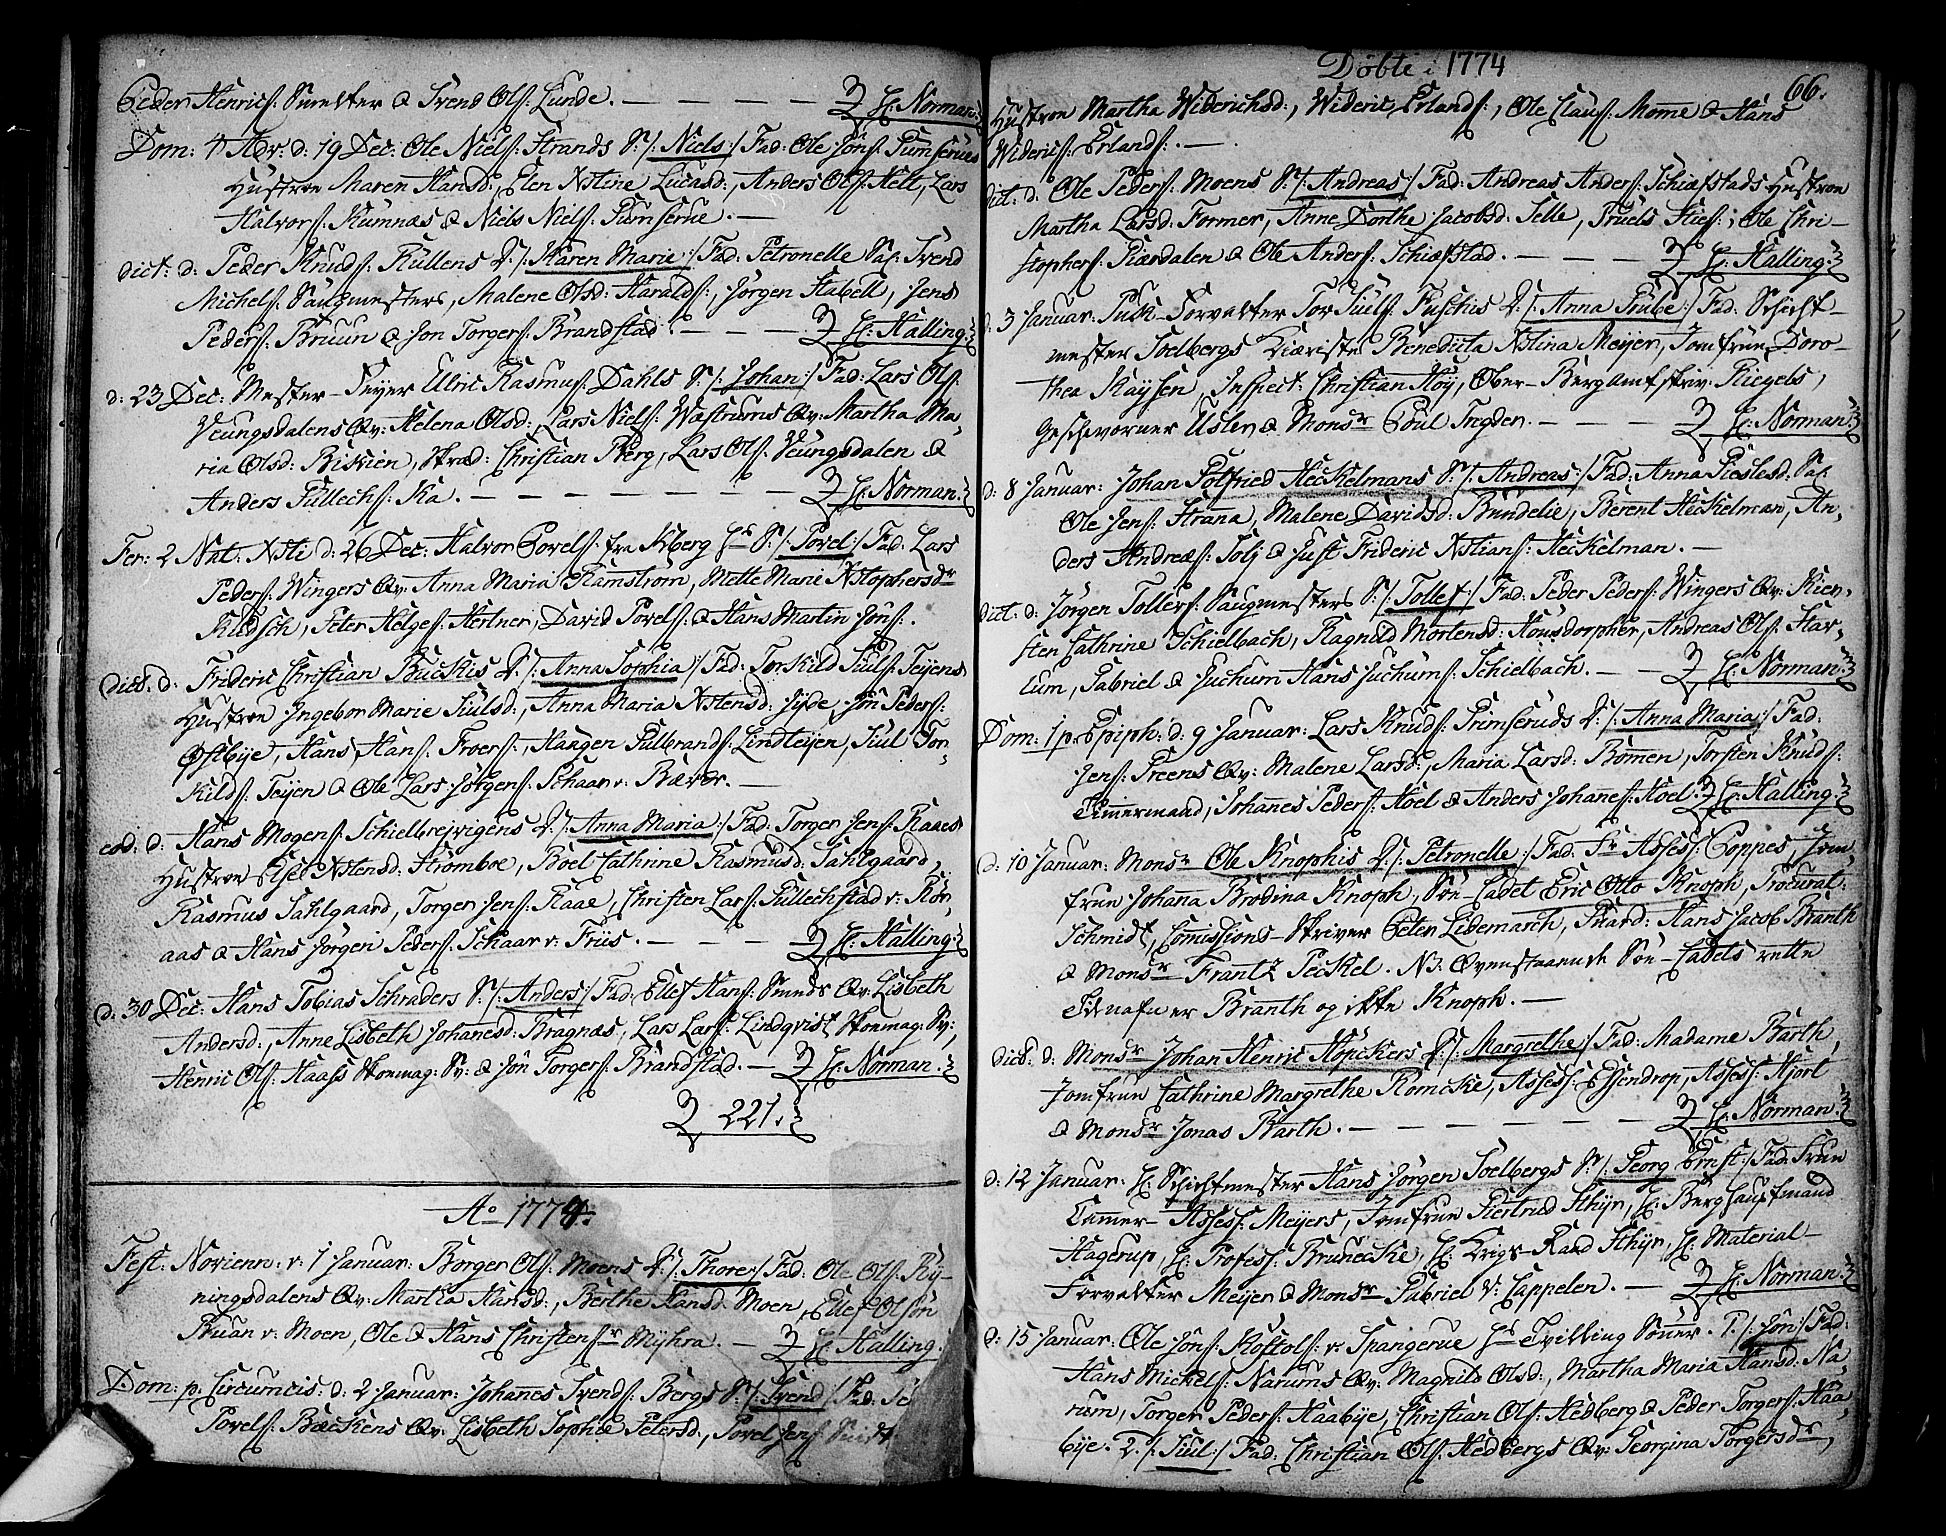 Peder Henrics: Smelter & Svend Ols: Lunde. — H: Norman.
Dom: 4 Adv: d: 19 Dec: Ole Niels: Strands S: /: Niels :/ Fad: Ole Jøns: Gumseruds
Hustroe Maren Hansd:, Elen Xstine Lucasd:, Anders Ols: Helt, Lars
Halvors: Kumnæs & Niels Niels: Gumserue. —
dict: d: Peder Knuds: Kullens D: /: Karen Marie :/ Fad: Petronelle Sal: Svend
Michels: Saugmesters, Malene Olsd: Haralds:, Jørgen Stabell, Jens
Peders: Bruun & Jon Torgers: Brandstad. — H: Halling.
d: 23 Dec: Mester-Svejer Ulric Rasmus: Dahls S: /: Johan :/ Fad: Lars Ols:
Veungsdalens Qv: Helena Olsd:, Lars Niels: Wastrums Qv: Martha Ma-
ria Olsd: Biskien, Skræd: Christian Berg, Lars Ols: Veungsdalen &
Anders Gullechs: Ka. — H: Norman.
Fer: 2 Nat: Xsti d: 26 Dec: Halvor Povels: fra Kberg Hs S: /: Povel :/ Fad: Lars
Peders: Wingers Qv: Anna Maria Ramstrøm, Mette Marie Xstophersdr
Kudsch, Peter Helges: Hertner, David Povels: & Hans Martin Jøns:.
dict: d: Frideric Christian Buckis D: /: Anna Sophia :/ Fad: Torkild Juuls: Teijens
Hustroe Ingebor Marie Juulsd:, Anna Maria Xstensd: Jyde, Jøn Peders:
Østbye, Hans Hans: Froers:, Haagen Gulbrands: Lindteijen, Juul Tor-
kilds: Teijen & Ole Lars Jørgens: Schaar v: Bæver. —
eod: d: Hans Mogens: Schielbrejrigens D: /: Anna Maria :/ Fad: Torger Jens: Raaes
Hustroe Else Xstensd: Stromboe, Boel Cathrine Rasmusd: Dahlgaard,
Rasmus Dahlgaard, Torger Jens: Raae, Christen Lars: Gullechstad v: Kør-
aas & Hans Jørgen Peders: Schaar v: Friis. — H: Halling.
d: 30 Dec: Hans Tobias Schraders S: /: Anders :/ Fad: Ellef Hans: Smeds Qv: Lisbeth
Andersd:, Anne Lisbeth Johanesd: Bragnæs, Lars Lars: Lindqvist Skomag: Sv:,
Henric Ols: Haass Skomag: Sv: & Jøn Torgers: Brandstad. — H: Norman.
221.
Ao 1774.
Fest: Noviann: v: 1 Januar: Børger Ols: Moens D: /: Thore :/ Fad: Ole Ols: Ry-
ningsdalens Qv: Martha Hansd:, Berthe Hansd: Moen, Ellef Olsøn
Bruan v: Moen, Ole & Hans Christens:r Myhra. — H: Halling.
Dom: p: Circumcis: d: 2 Januar: Johannes Svends: Bergs S: /: Svend :/ Fad:
Povels: Bæckens Qv: Lisbeth Sophie Petersd:, Povel Jens:
Døbte i 1774
66.
Hustroe Martha Widerichsd:, Wideric Erlands:, Ole Claus: Mome & Hans
Widerics: Erlands:. —
dict: d: Ole Peders: Moens S: /: Andreas :/ Fad: Andreas Anders: Schiæfstads Hustroe
Martha Larsd: Former, Anne Dorthe Jacobsd: Selle, Truels Sties:, Ole Chri-
stophers: Piærdalen & Ole Anders: Schiæfstad. — H: Halling.
d: 3 Januar: Puk-Forvalter Tor Juuls: Fuschis D: /: Anna Grube :/ Fad: Schicht-
mester Soelbergs Kiæriste Benedicta Xstina Meijer, Jomfrue Doro-
thea Kaysen, Inspect: Christian Høy, Ober-Bergamtskriv: Riegels,
Geschworner Usler & Monsr Poul Ingden. — H: Norman.
d: 8 Januar: Johan Gotfried Heckelmans S: /: Andreas :/ Fad: Anna Giesled: Sal
Ole Jens: Stranna, Malene Davidsd: Bundelie, Berent Heckelman, An-
ders Andreæs: Solj & Just Frideric Xstians: Heckelman. —
dict: d: Jørgen Tollefs: Saugmesters S: /: Tollef :/ Fad: Peder Peders: Wingers Qv: Kien-
sten Cathrine Schielbach, Ragnild Mortensd: Housdorpher, Andreas Ols: Har-
lum, Gabriel & Juchum Hans Juchums: Schielbach. — H: Norman.
Dom: 1 p: Epiph: d: 9 Januar: Lars Knuds: Grimseruds D: /: Anna Maria :/ Fad:
Jens: Preens Qv: Malene Larsd:, Maria Larsd: Bømen, Torsten Knuds:
Timermand, Johannes Peders: Hoel & Anders Johanes: Hoel. H: Halling.
d: 10 Januar: Monsr Ole Knophis D: /: Petronelle :/ Fad: Fr Assess: Coppes, Jom-
frue Johanna Brodina Knoph, Søe-Cadet Eric Otto Knoph, Procurat:
Schmidt, Comissions-Skriver Peter Lidemarch, Stiærd: Hans Jacob Branth
& Monsr Frantz Peckel. NB. Ovenstaaende Søe-Cadets rette
Tilnafn er Branth og ikke Knoph. —
dict: d: Monsr Johan Henric Høpckers D: /: Margrethe :/ Fad: Madame Barth,
Jomfrue Cathrine Margrethe Romcke, Assess: Essendrop, Assess: Hjort
& Monsr Jonas Barth. — H: Norman.
d: 12 Januar: H: Schichtmester Hans Jørgen Soelbergs S: /: Georg Ernst :/ Fad: Frue
Camer-Assess: Meyers, Jomfrue Giertrud Sthyr, H: Berghauptmand
Hagerup, H: Profess: Brunecke, H: Krigs-Raad Sthyr, H: Material-
Forvalter Meyer & Monsr Gabriel V: Cappelen. — H: Norman.
d: 15 Januar: Ole Jøns: Kostols: v: Spangerue Hs Tvilling Sønner. 1. /: Jøn :/ Fad:
Hans Mickels: Narums Qv: Magnild Olsd:, Martha Maria Hansd: Na-
rum, Torger Peders: Haabye, Christian Ols: Hedberg & Peder Torgers: Haa-
bye. 2. /: Juul :/ Fad: Christian Ols: Hedbergs Qv: Georgina Torgersdr,